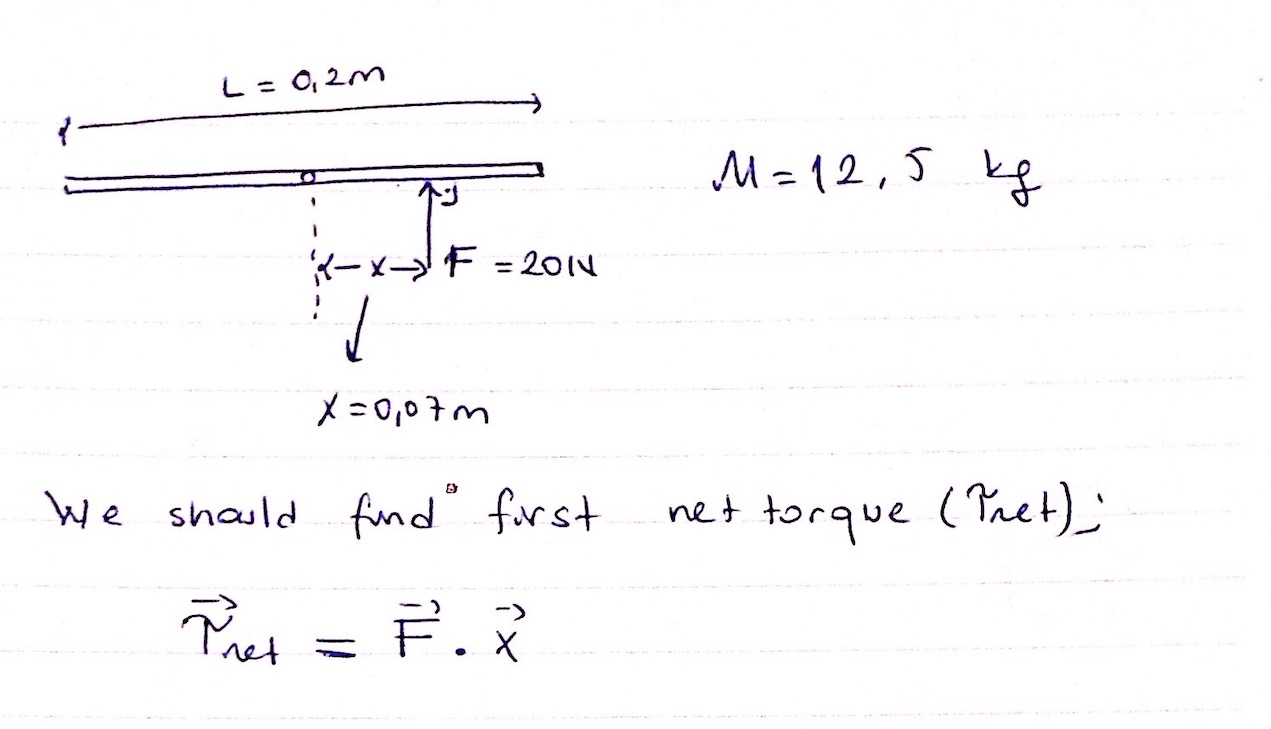 L = 0,2m
M = 12,5 kg
x
F = 20N
x = 0,07m
We should find first net torque (τnet);
τ⃗net = F⃗ . x⃗